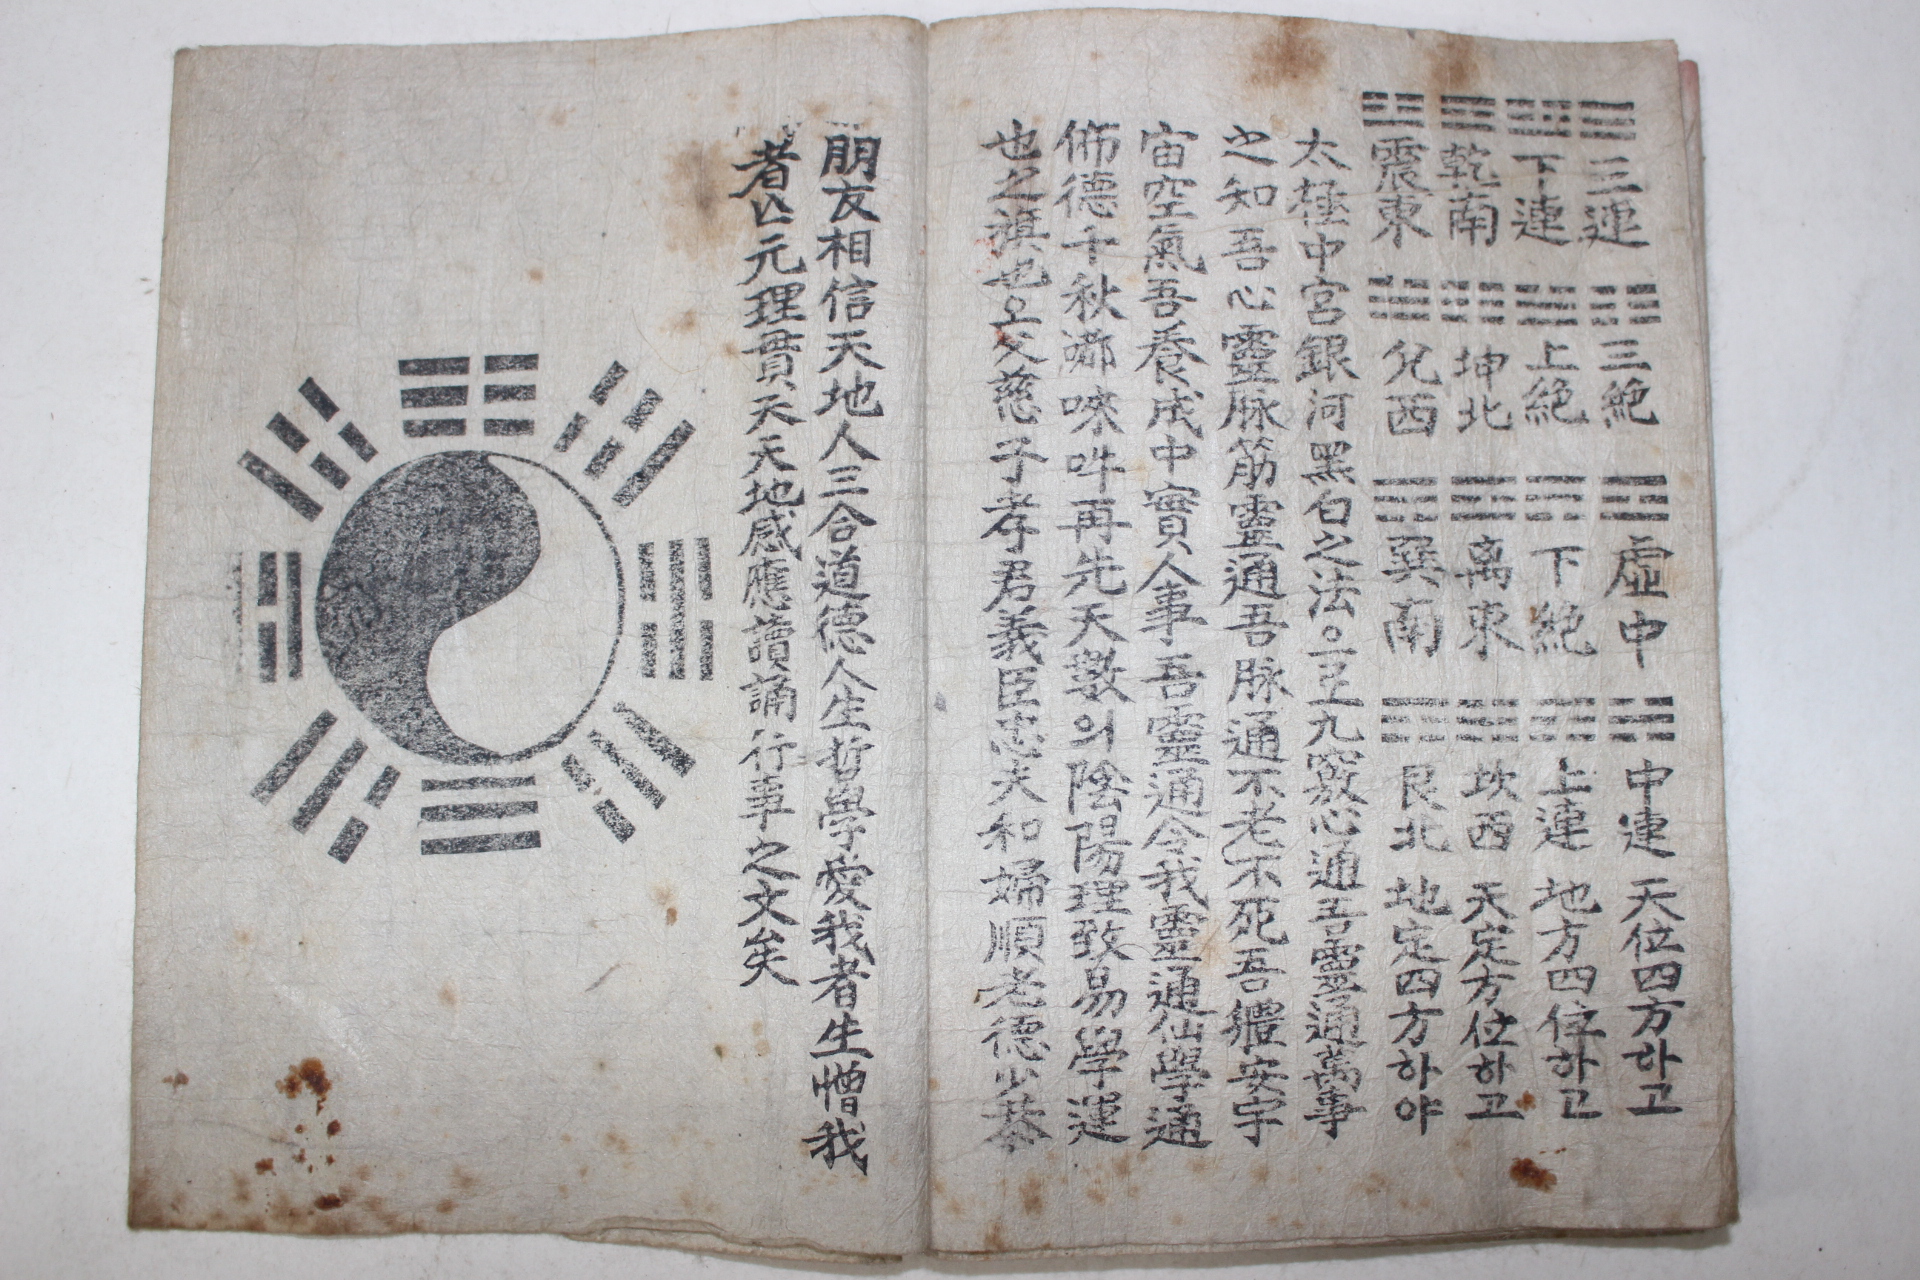 三連 三絶 虛中 中連 天位四方하고
下連 上絶 下絶 上連 地方四位하고
乾南 坤北 离東 坎西 天定方位하고
震東 兌西 巽南 艮北 地定四方하야
太極中宮銀河黑白之法으로九竅心通吾靈通萬事
之知吾心靈脉筋靈通吾脉通不老不死吾軆安宇
宙空氣吾養成中實人事吾靈通今我靈通仙學通
佈德千秋 再先天數의陰陽理致易學運
也之旗也오父慈子孝君義臣忠夫和婦順老德少恭
朋友相信天地人三合道德人生哲學愛我者生憎我
者亡元理貫天天地感應讀誦行事之文矣